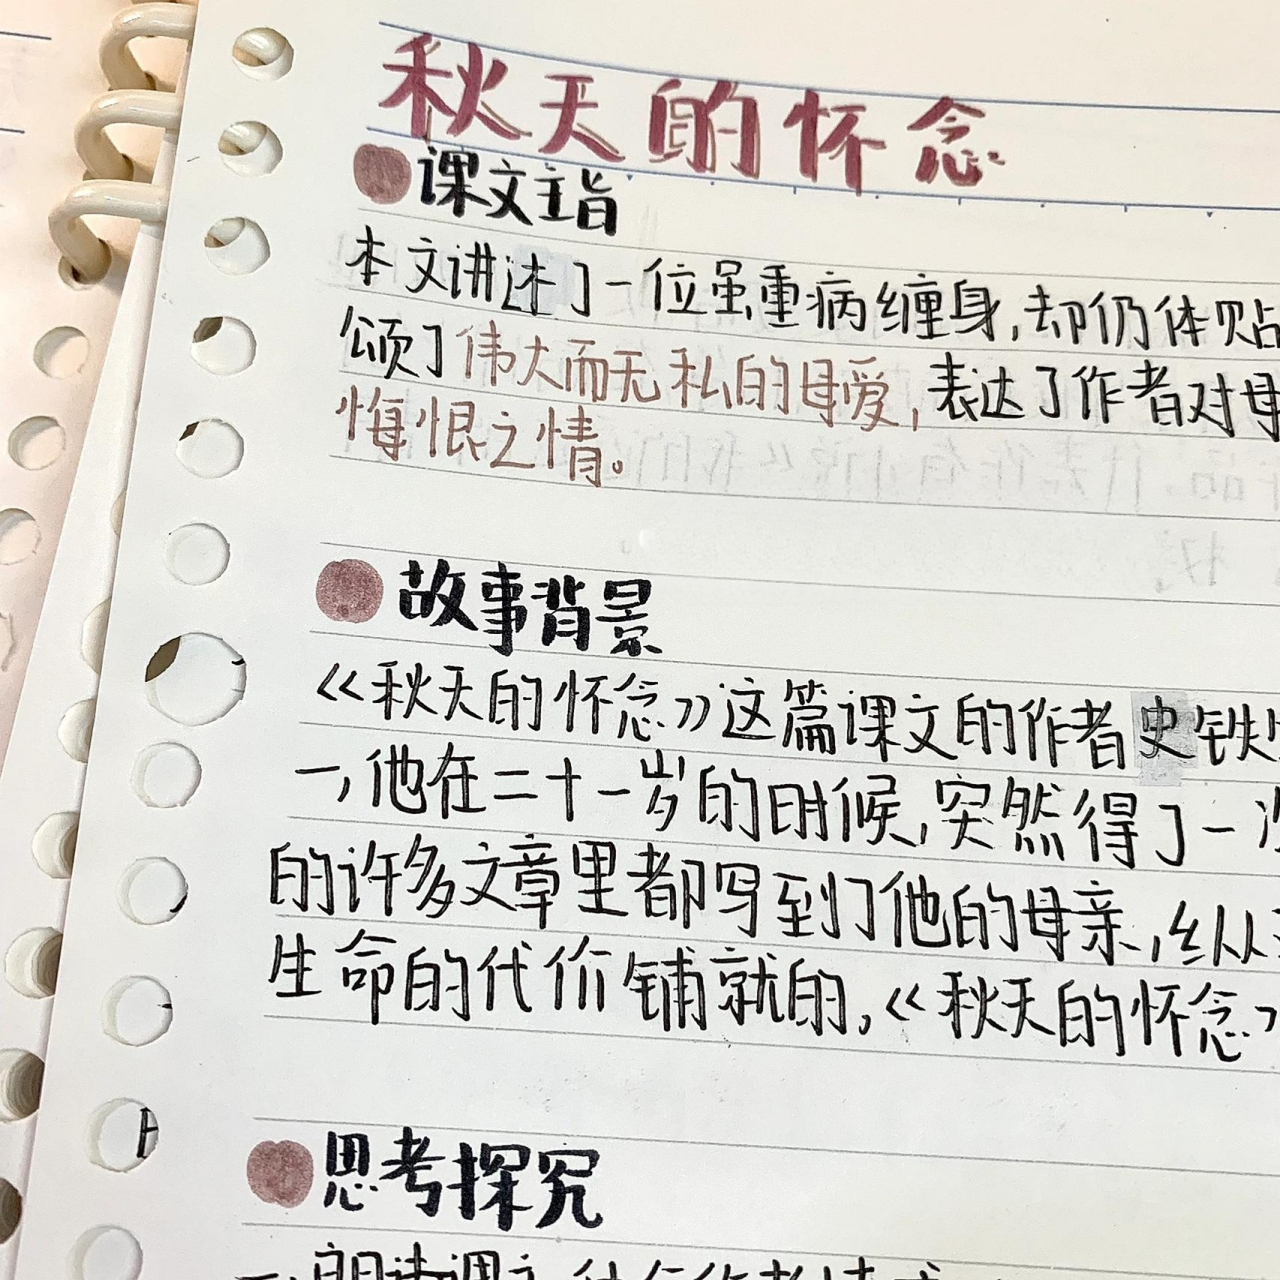 秋天的怀念
课文主旨
本文讲述了一位虽重病缠身,却仍体贴
颂了伟大而无私的母爱,表达了作者对母
悔恨之情。
故事背景
《秋天的怀念》这篇课文的作者史铁
一,他在二十一岁的时候,突然得了一
的许多文章里都写到了他的母亲,纵从
生命的代价铺就的,《秋天的怀念》
思考探究
一、朗读课文